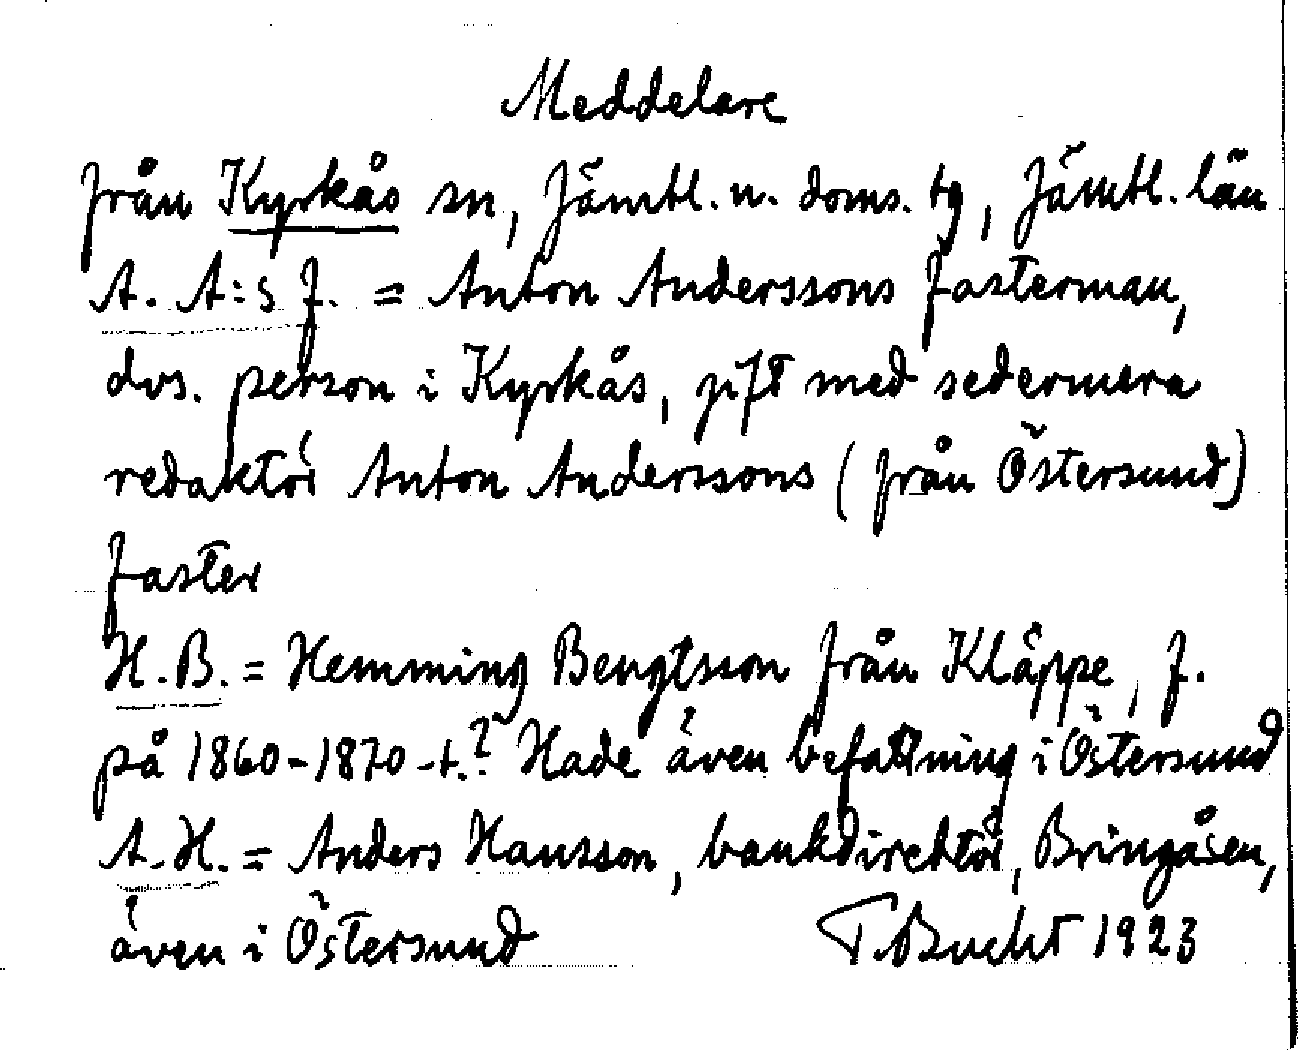 Meddelare
från Kyrkås sn, Jämtl. n. doms. tg, Jämtl. län
A. A:s f. = Anton Anderssons fasterman,
dvs. person i Kyrkås, gift med sedermera
redaktör Anton Anderssons (från Östersund)
faster
H. B. = Hemming Bengtsson från Kläppe, f.
på 1860-1870-t.? Hade även befattning i Östersund
A. H. = Anders Hansson, bankdirektör, Bringåsen,
även i Östersund T. Bucht 1923